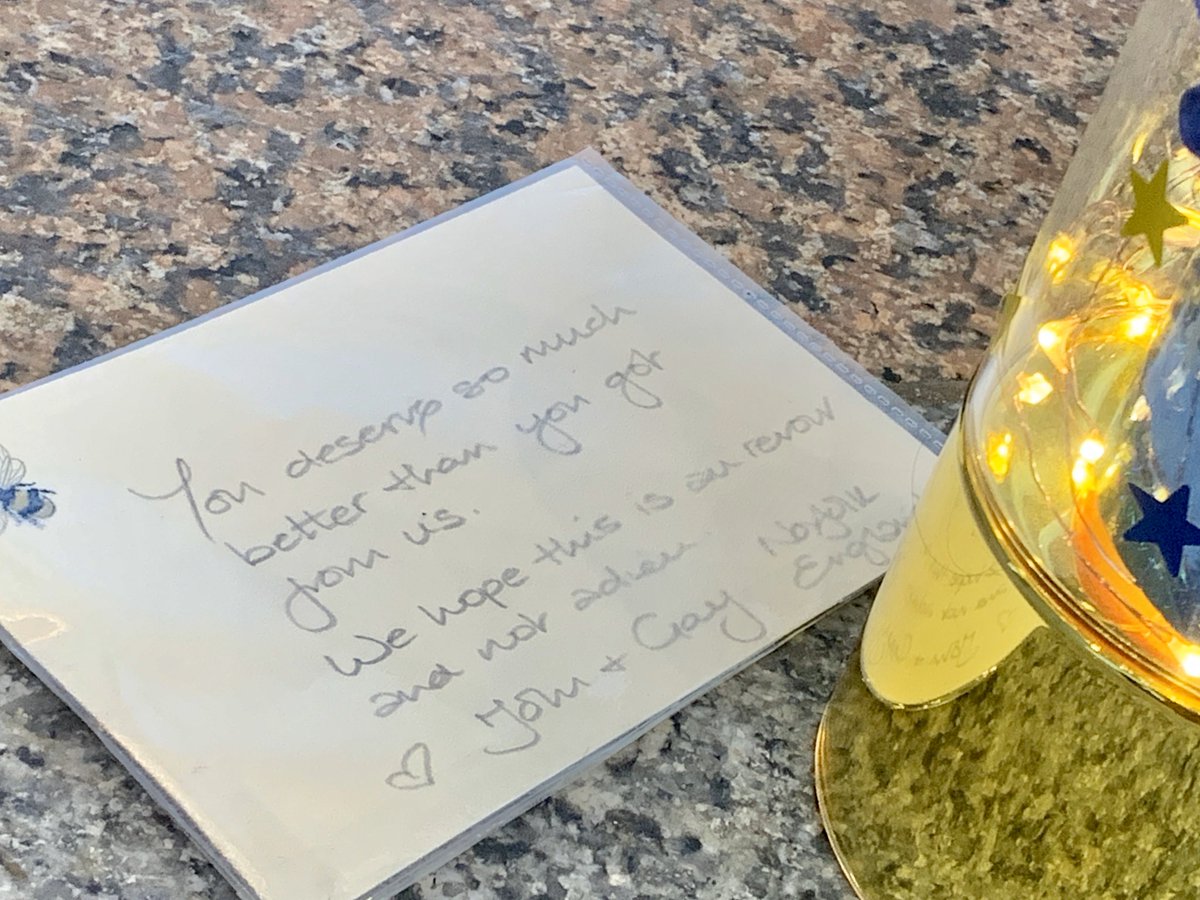 You deserve so much
better than you got
from us.
We hope this is au revoir
and not adieu
♡ Tom + Gay Norfolk
England